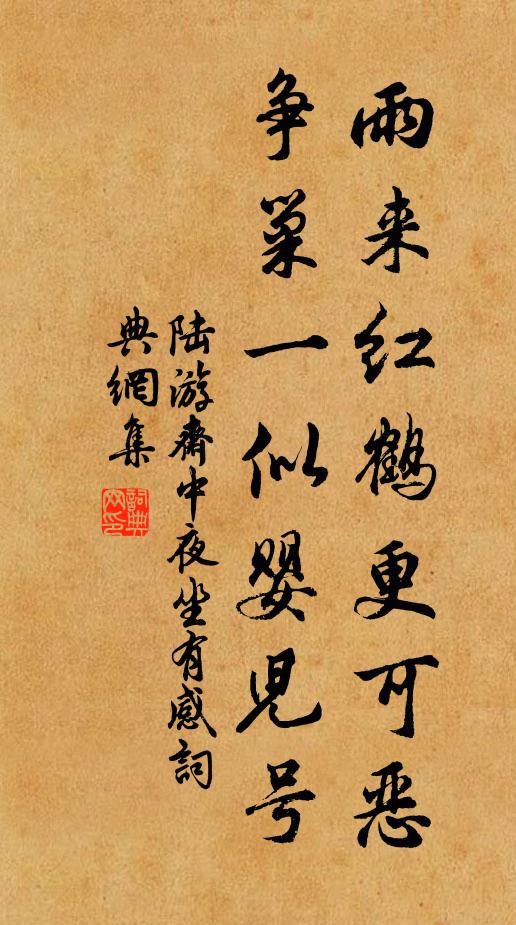 雨来红鹤更可恶
争巢一似婴児号
陆游齋中夜坐有感詞
典網集
詞典
网印